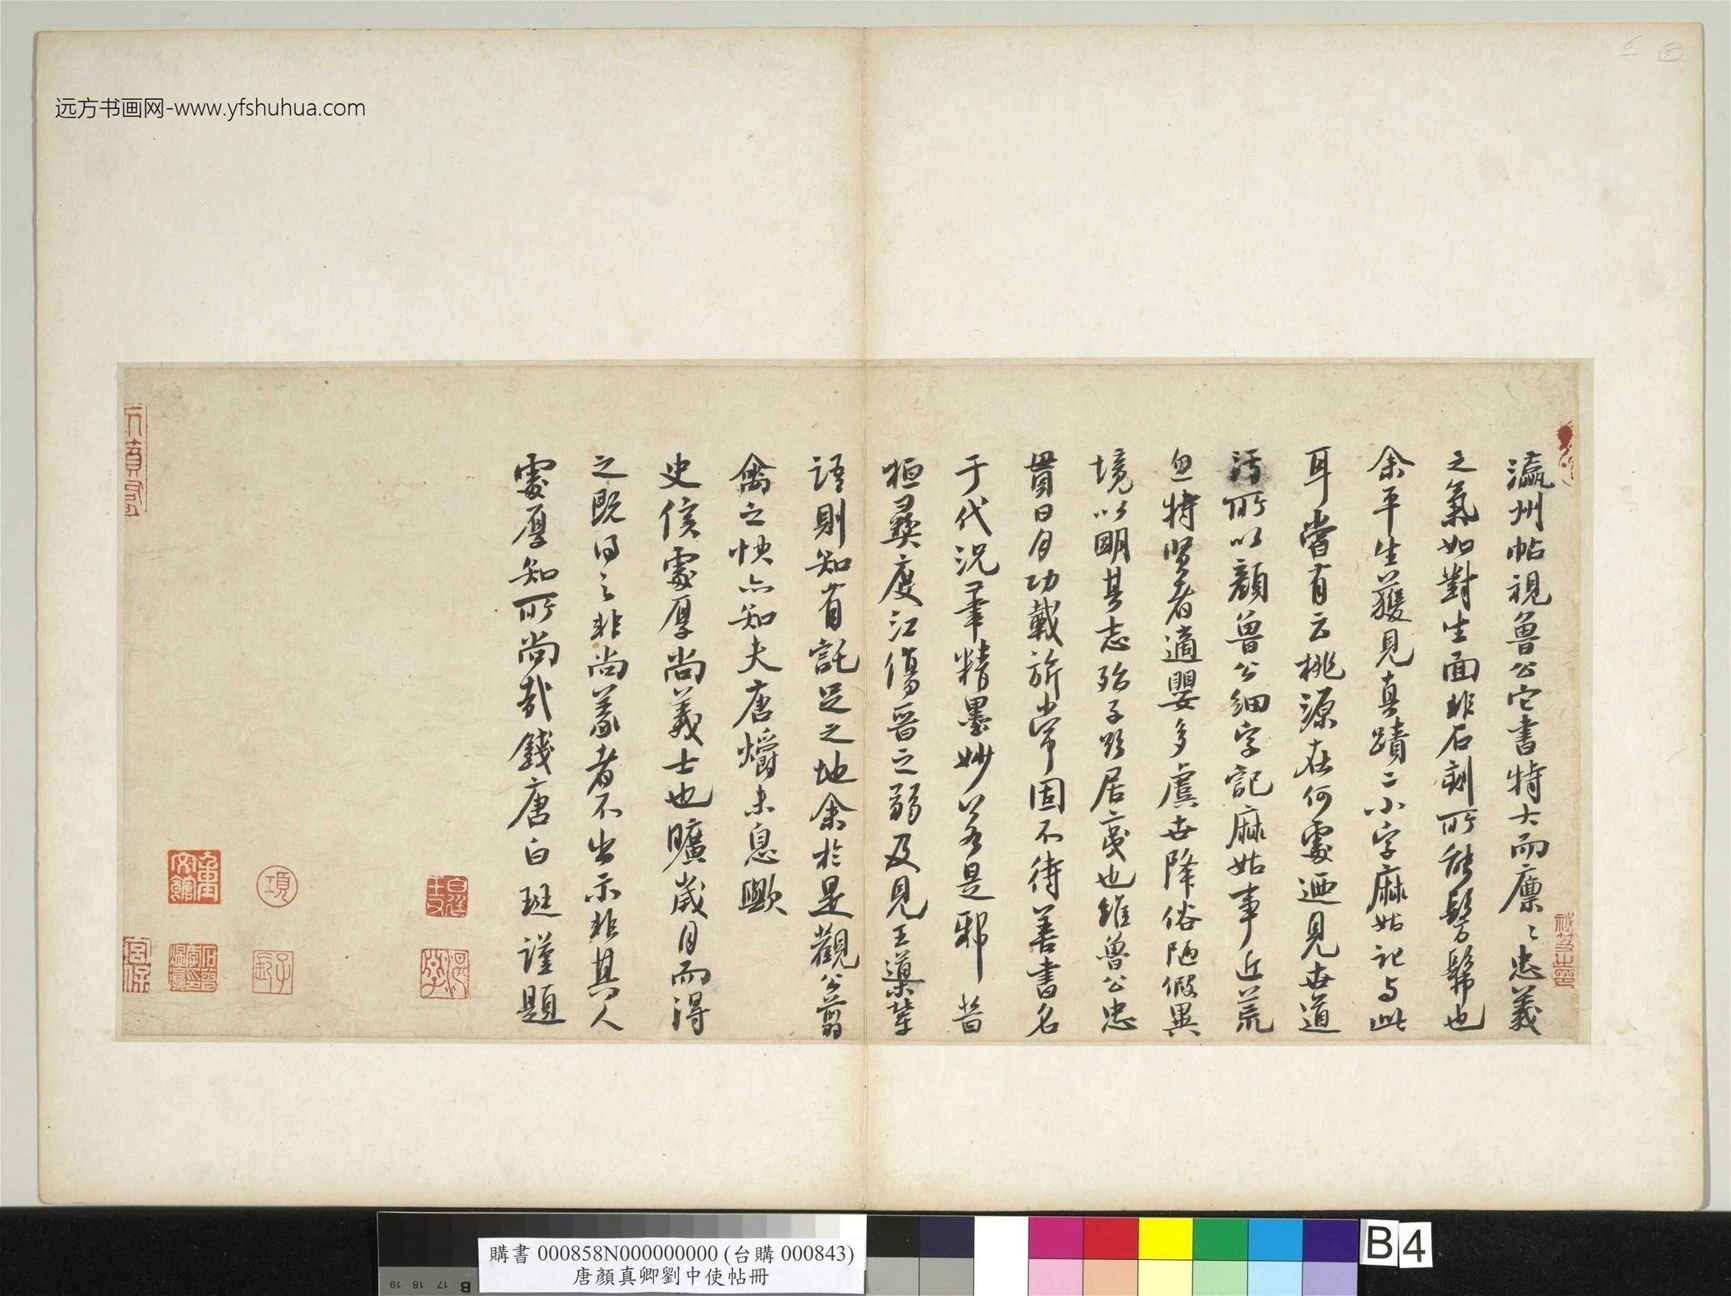 远方书画网-www.yfshuhua.com
瀛州帖視魯公它書特大而廩〻忠義
之氣如對生面非石刻所能髣髴也
余平生獲見真蹟二小字麻姑記与此
耳嘗有云桃源在何處迺見世道
污所以顔魯公細字記麻姑事近荒
忽特賢者適嬰多虞世降俗陋假異
境以明其志殆子欲居夷也維魯公忠
貫日月功載旂常固不待善書名
于代況筆精墨妙若是邪昔
桓彞度江傷晉之弱及見王導輩
語則知有託足之地余於是觀公翦
禽之快亦知夫唐爝未息歟
史侯處厚尚義士也曠歲月而得
之既得之非尚義者不出示非其人
處厚知所尚哉錢唐白珽謹題
購書 000858N000000000 (台購 000843)
唐顏真卿劉中使帖冊
B 4
B 17 18 19